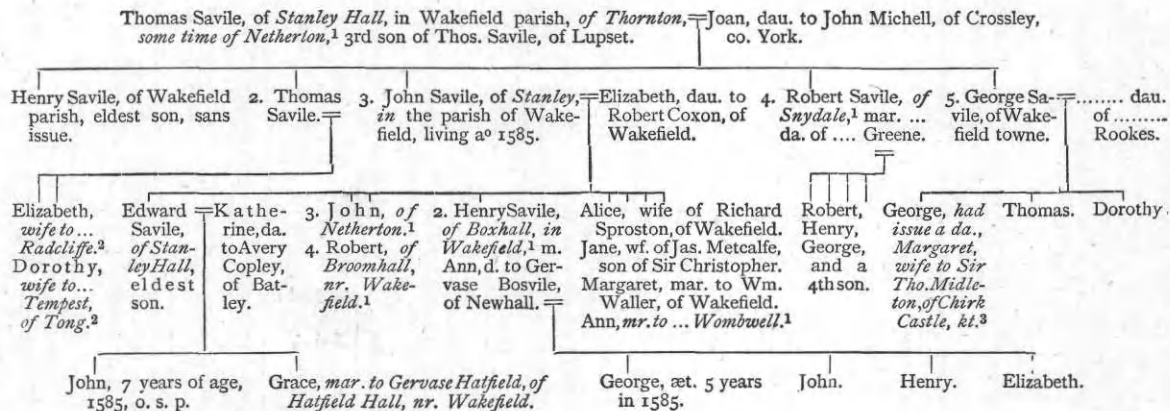 Thomas Savile, of Stanley Hall, in Wakefield parish, of Thornton,
some time of Netherton,¹ 3rd son of Thos. Savile, of Lupset.
Joan, dau. to John Michell, of Crossley,
co. York.
Henry Savile, of Wakefield
parish, eldest son, sans
issue.
2. Thomas
Savile.
3. John Savile, of Stanley,
in the parish of Wake-
field, living aº 1585.
Elizabeth, dau. to
Robert Coxon, of
Wakefield.
4. Robert Savile, of
Snydale,¹ mar. ...
da. of .... Greene.
5. George Sa-
vile, of Wake-
field towne.
........ dau.
of .........
Rookes.
Elizabeth,
wife to ...
Radcliffe.²
Dorothy,
wife to...
Tempest,
of Tong.²
Edward
Savile,
of Stan-
ley Hall,
eldest
son.
Kathe-
rine, da.
to Avery
Copley,
of Bat-
ley.
3. John, of
Netherton.¹
4. Robert, of
Broomhall,
nr. Wake-
field.¹
2. Henry Savile,
of Boxhall, in
Wakefield,¹ m.
Ann, d. to Ger-
vase Bosvile,
of Newhall.
Alice, wife of Richard
Sproston, of Wakefield.
Jane, wf. of Jas. Metcalfe,
son of Sir Christopher.
Margaret, mar. to Wm.
Waller, of Wakefield.
Ann, mr. to ... Wombwell.¹
Robert,
Henry,
George,
and a
4th son.
George, had
issue a da.,
Margaret,
wife to Sir
Tho. Midle-
ton, of Chirk
Castle, kt.³
Thomas.
Dorothy.
John, 7 years of age,
1585, o. s. p.
Grace, mar. to Gervase Hatfield, of
Hatfield Hall, nr. Wakefield.
George, æt. 5 years
in 1585.
John.
Henry.
Elizabeth.